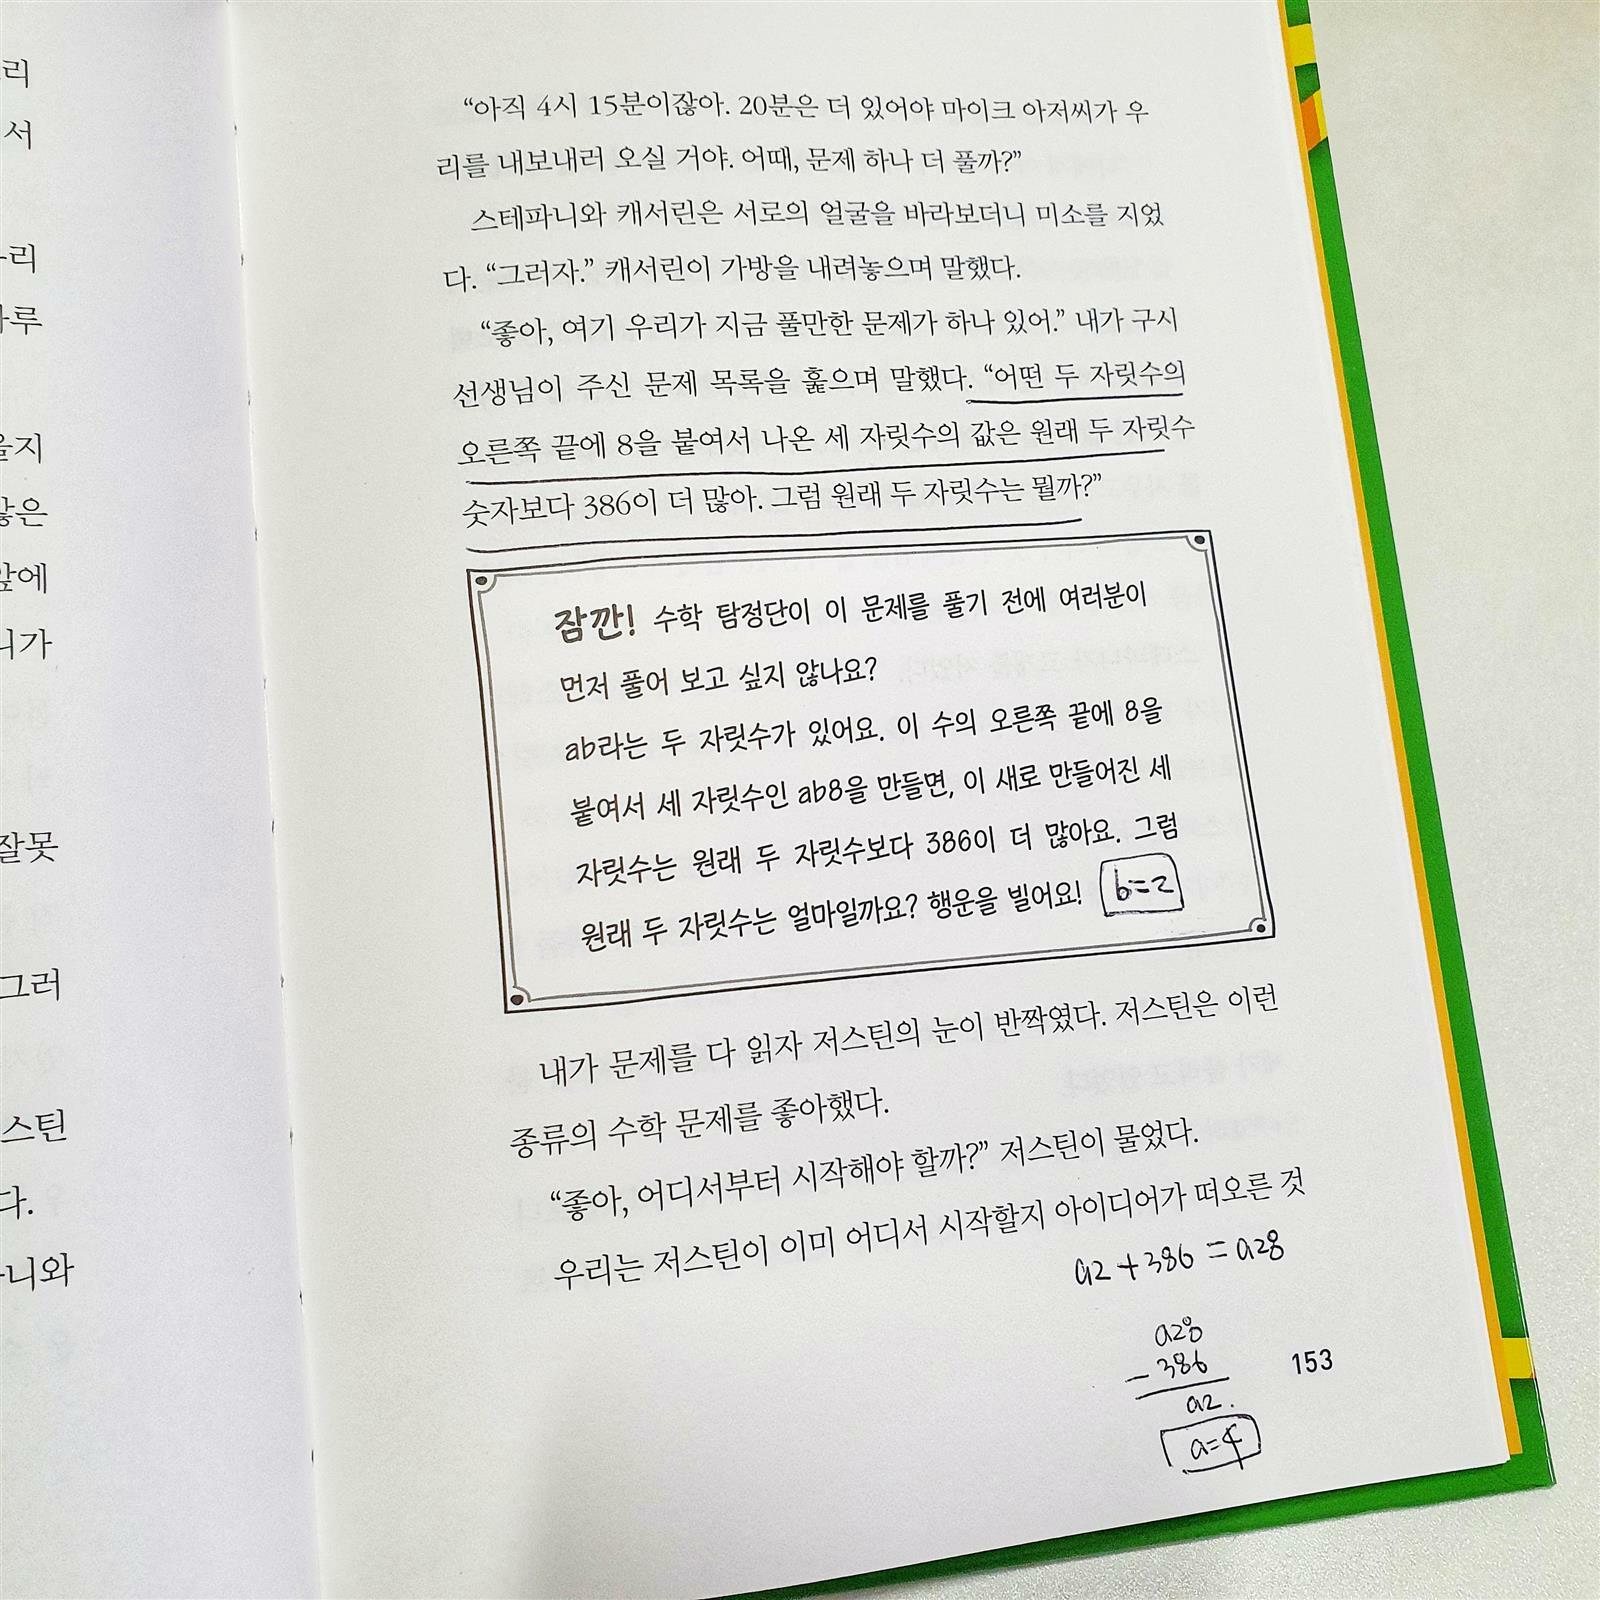 리
서
리
루
을지
않은
앞에
니가
잘못
그러
스틴
다.
니와
“아직 4시 15분이잖아. 20분은 더 있어야 마이크 아저씨가 우
리를 내보내러 오실 거야. 어때, 문제 하나 더 풀까?”
스테파니와 캐서린은 서로의 얼굴을 바라보더니 미소를 지었
다. “그러자.” 캐서린이 가방을 내려놓으며 말했다.
“좋아, 여기 우리가 지금 풀만한 문제가 하나 있어.” 내가 구시
선생님이 주신 문제 목록을 훑으며 말했다. “어떤 두 자릿수의
오른쪽 끝에 8을 붙여서 나온 세 자릿수의 값은 원래 두 자릿수
숫자보다 386이 더 많아. 그럼 원래 두 자릿수는 뭘까?”
잠깐! 수학 탐정단이 이 문제를 풀기 전에 여러분이
먼저 풀어 보고 싶지 않나요?
ab라는 두 자릿수가 있어요. 이 수의 오른쪽 끝에 8을
붙여서 세 자릿수인 ab8을 만들면, 이 새로 만들어진 세
자릿수는 원래 두 자릿수보다 386이 더 많아요. 그럼
원래 두 자릿수는 얼마일까요? 행운을 빌어요! b=2
내가 문제를 다 읽자 저스틴의 눈이 반짝였다. 저스틴은 이런
종류의 수학 문제를 좋아했다.
“좋아, 어디서부터 시작해야 할까?” 저스틴이 물었다.
우리는 저스틴이 이미 어디서 시작할지 아이디어가 떠오른 것
a2+386=a28
a28
-386
a2.
a=4
153